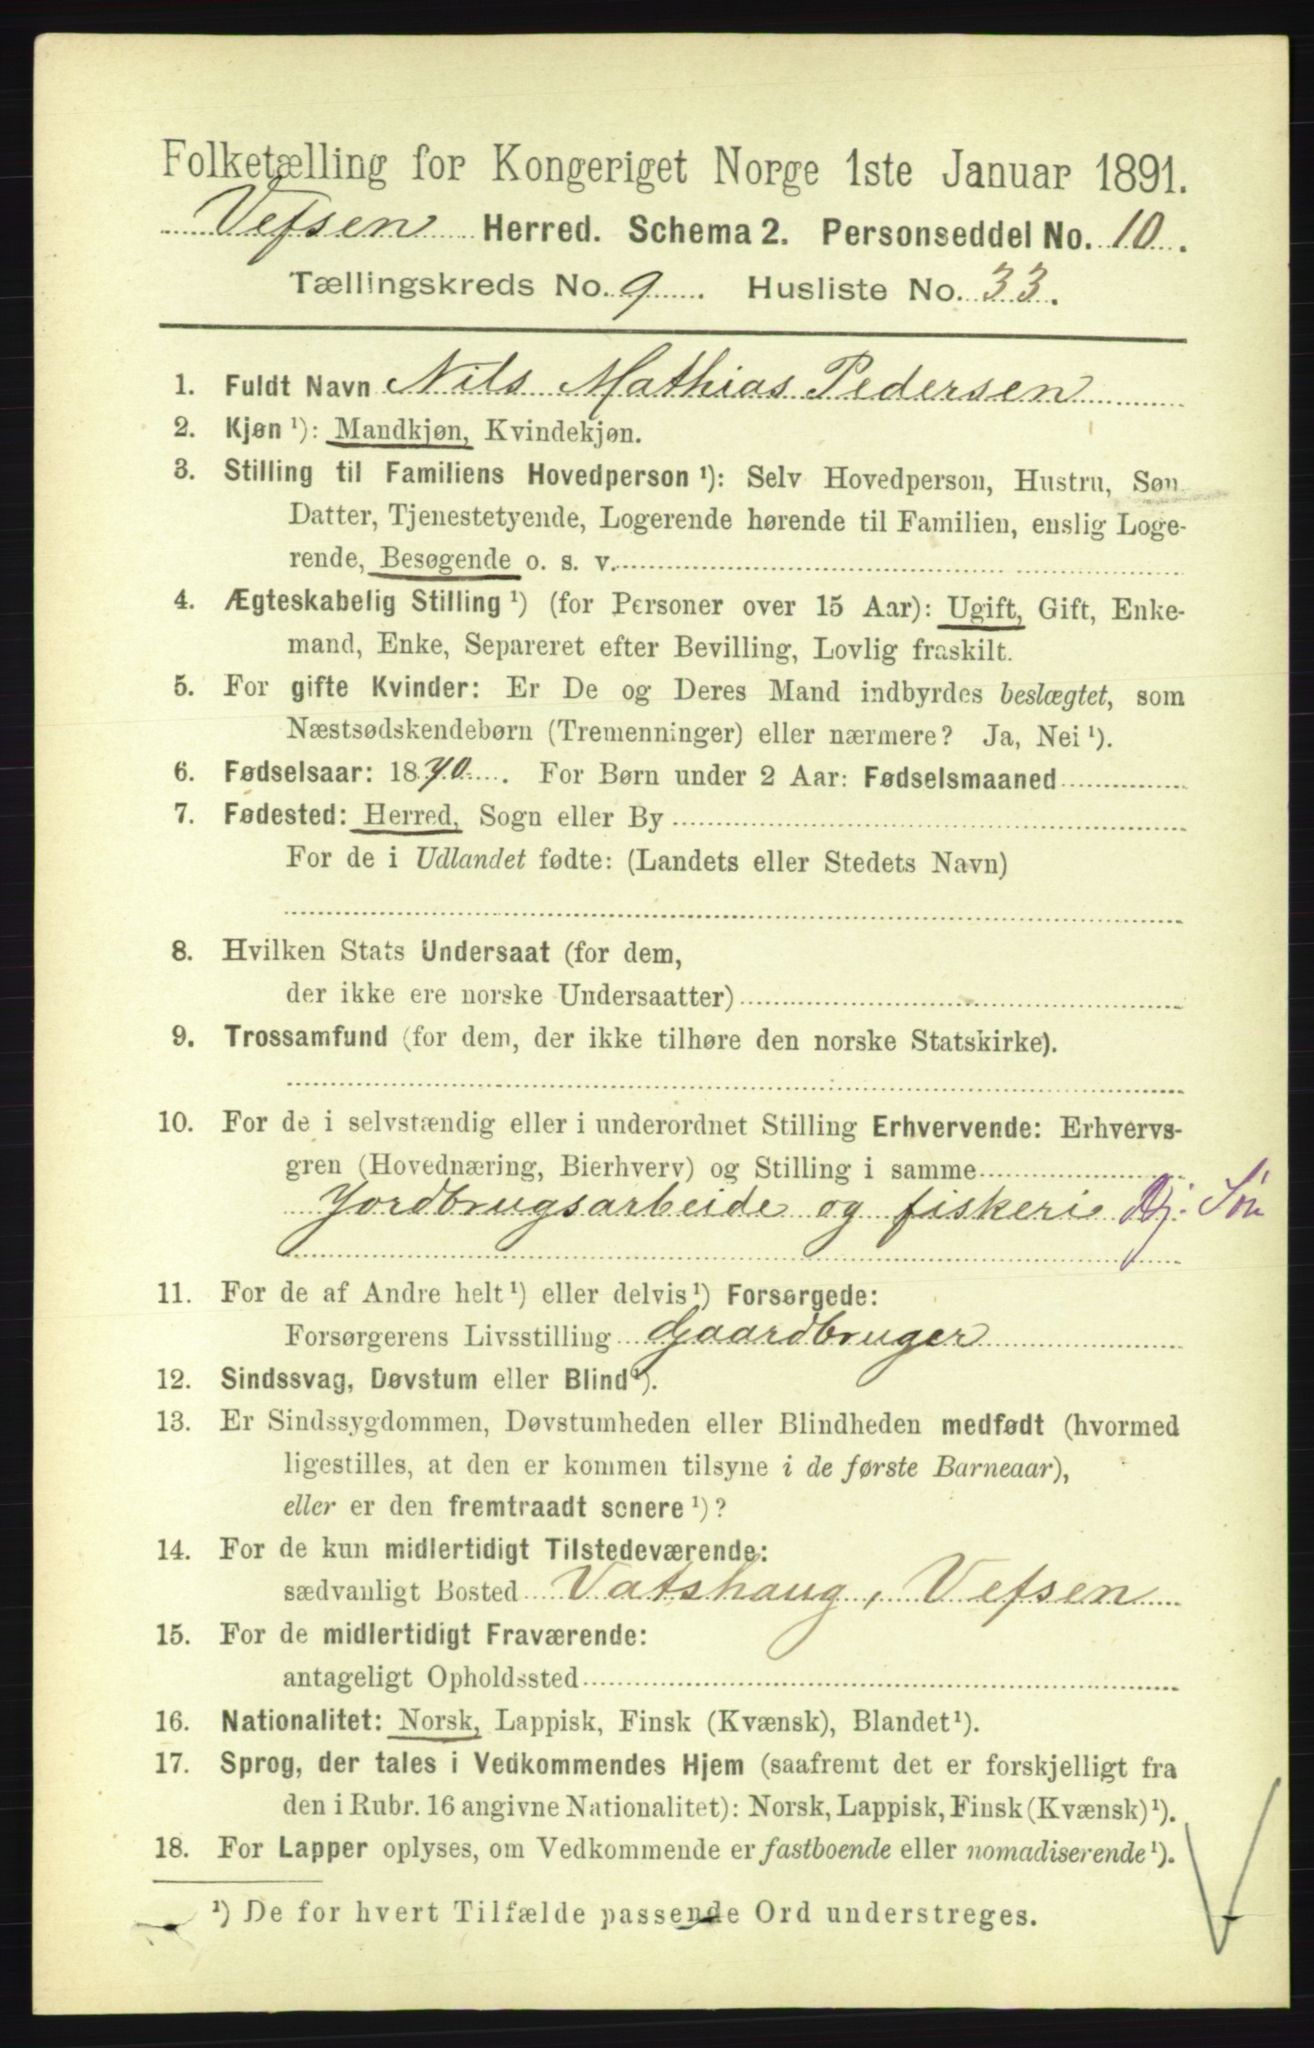 Folketælling for Kongeriget Norge 1ste Januar 1891.
Vefsen Herred. Schema 2. Personseddel No. 10.
Tællingskreds No. 9 Husliste No. 33.
1. Fuldt Navn Nils Mathias Pedersen
2. Kjøn ¹): Mandkjøn, Kvindekjøn.
3. Stilling til Familiens Hovedperson ¹): Selv Hovedperson, Hustru, Søn
Datter, Tjenestetyende, Logerende hørende til Familien, enslig Loge-
rende, Besøgende o. s. v.
4. Ægteskabelig Stilling ¹) (for Personer over 15 Aar): Ugift, Gift, Enke-
mand, Enke, Separeret efter Bevilling, Lovlig fraskilt.
5. For gifte Kvinder: Er De og Deres Mand indbyrdes beslægtet, som
Næstsødskendebørn (Tremenninger) eller nærmere? Ja, Nei ¹).
6. Fødselsaar: 1870. For Børn under 2 Aar: Fødselsmaaned
7. Fødested: Herred, Sogn eller By
For de i Udlandet fødte: (Landets eller Stedets Navn)
8. Hvilken Stats Undersaat (for dem,
der ikke ere norske Undersaatter)
9. Trossamfund (for dem, der ikke tilhøre den norske Statskirke).
10. For de i selvstændig eller i underordnet Stilling Erhvervende: Erhvervs-
gren (Hovednæring, Bierhverv) og Stilling i samme
Jordbrugsarbeide og fiskeri Gbj. Søn
11. For de af Andre helt ¹) eller delvis ¹) Forsørgede:
Forsørgerens Livsstilling Gaardbruger
12. Sindssvag, Døvstum eller Blind ¹).
13. Er Sindssygdommen, Døvstumheden eller Blindheden medfødt (hvormed
ligestilles, at den er kommen tilsyne i de første Barneaar),
eller er den fremtraadt senere ¹)?
14. For de kun midlertidigt Tilstedeværende:
sædvanligt Bosted Vatshaug, Vefsen
15. For de midlertidigt Fraværende:
antageligt Opholdssted
16. Nationalitet: Norsk, Lappisk, Finsk (Kvænsk), Blandet ¹).
17. Sprog, der tales i Vedkommendes Hjem (saafremt det er forskjelligt fra
den i Rubr. 16 angivne Nationalitet): Norsk, Lappisk, Finsk (Kvænsk) ¹).
18. For Lapper oplyses, om Vedkommende er fastboende eller nomadiserende ¹).
¹) De for hvert Tilfælde passende Ord understreges.